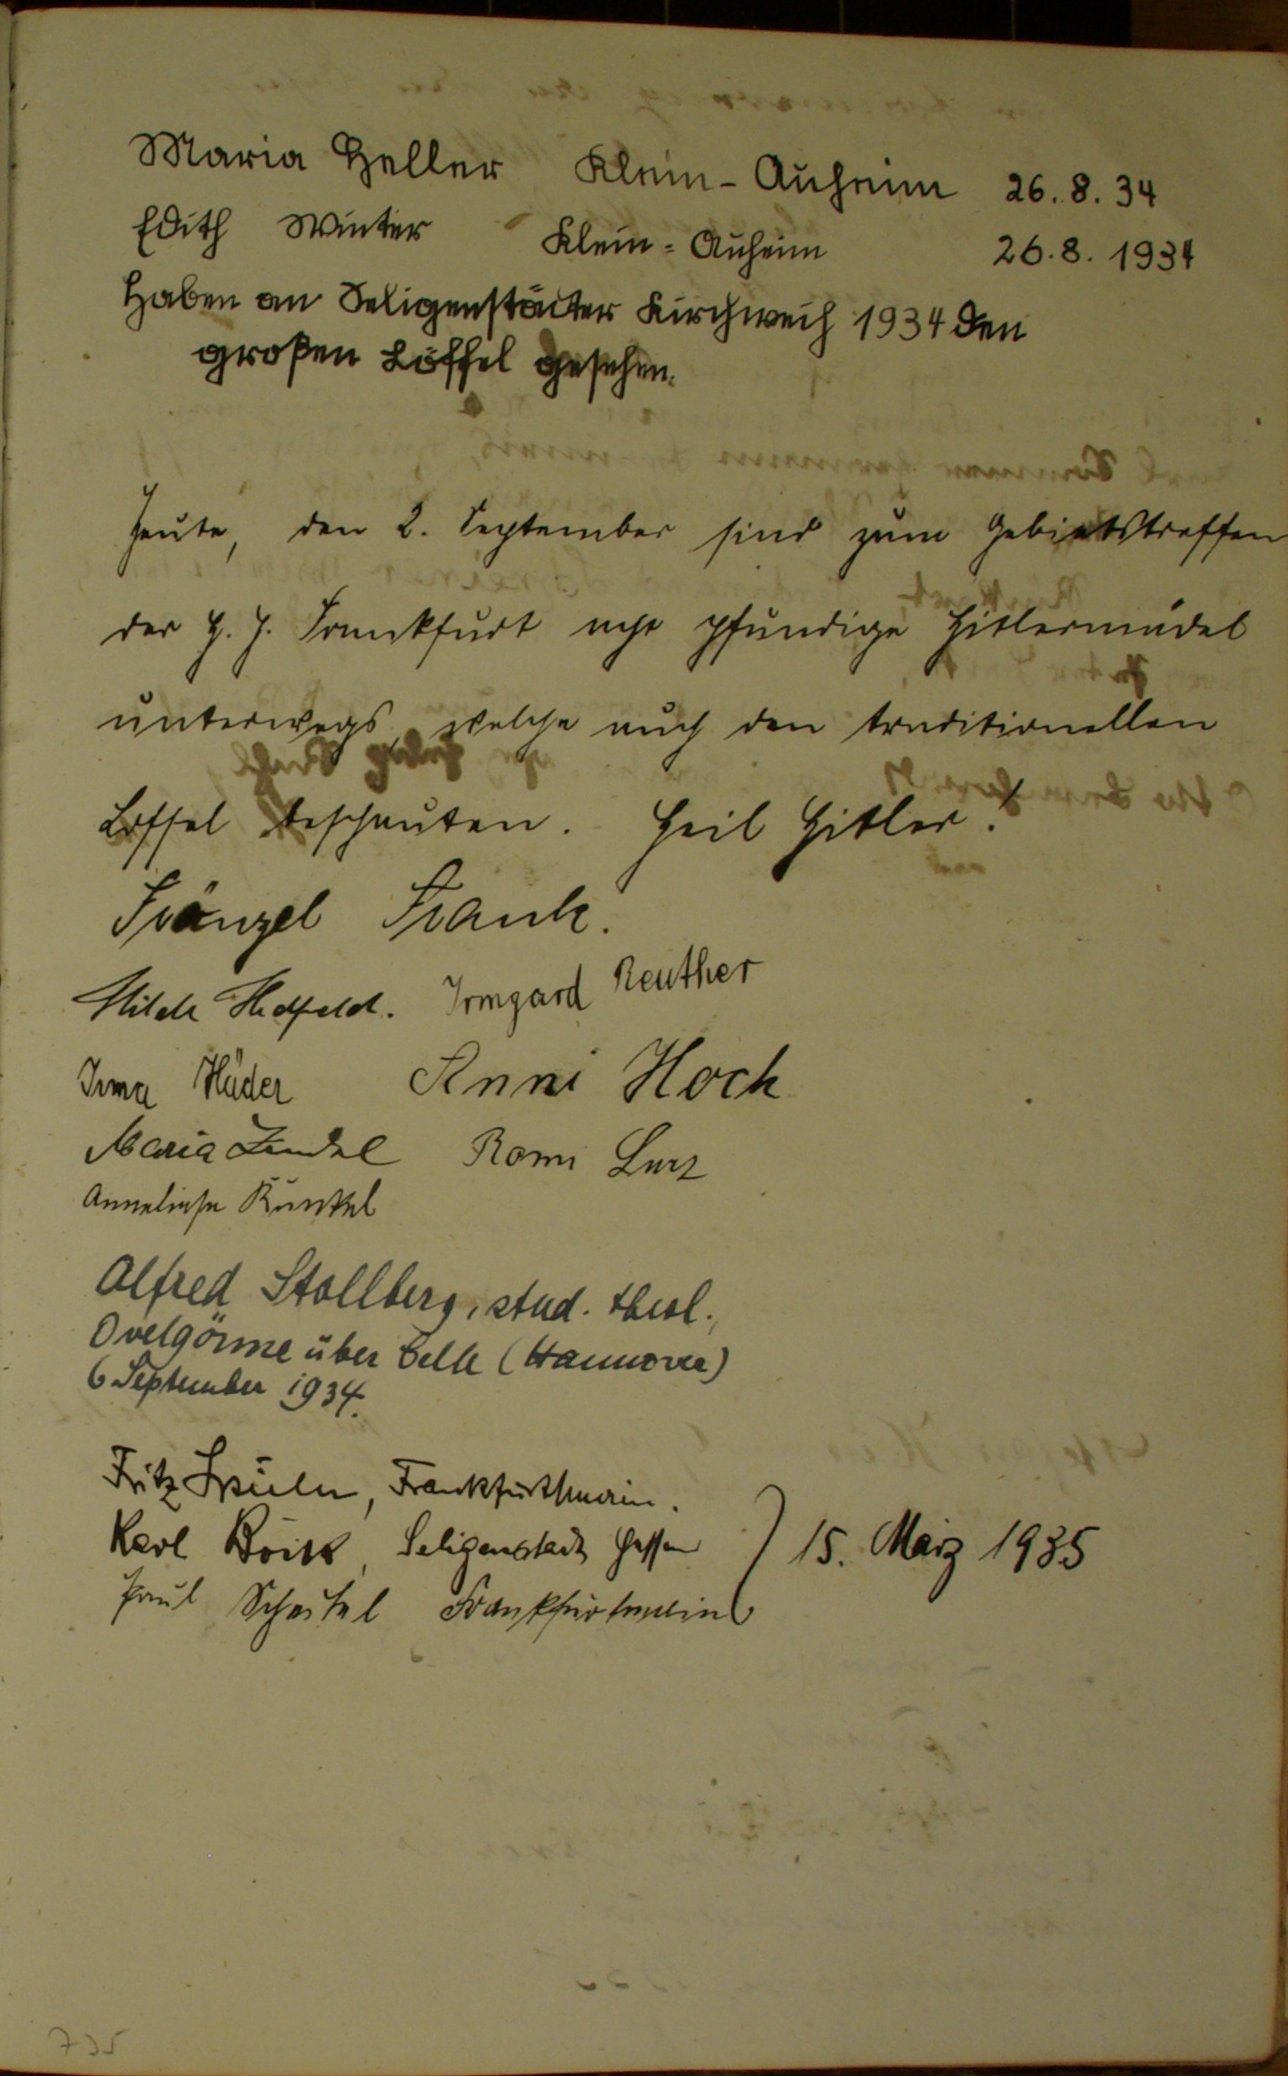 Maria Heller Klein-Auheim 26.8.34
Edith Winter Klein-Auheim 26.8.1934
Haben an Seligenstädter Kirchweih 1934 den
großen Löffel gesehen.
Heute, den 2. September sind zum Gebietstreffen
der H. J. Frankfurt acht pfundige Hitlermädel
unterwegs, welche auch den traditionellen
Löffel beschauten. Heil Hitler!
Fränzel Frank.
Hilde Hedfeld. Irmgard Reuther
Irma Häder Anni Hoch
Maria Zindel Romi Lurz
Anneliese Kunkel
Alfred Stollberg, stud. theol.,
Ovelgönne über Celle (Hannover)
6 September 1934.
Fritz Frankfurtmain.
Karl Seligenstadt Hessen
Paul Frankfurtmain
15. März 1935